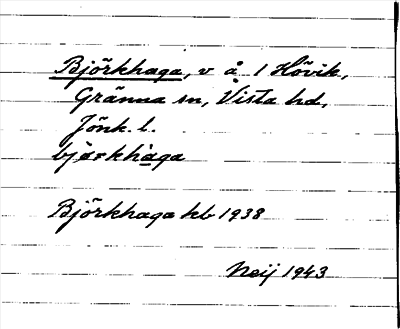 Björkhaga, v å 1 Hövik,
Gränna sn, Vista hd,
Jönk. l.
bjørkhàga
Björkhaga kb 1938
Neij 1943